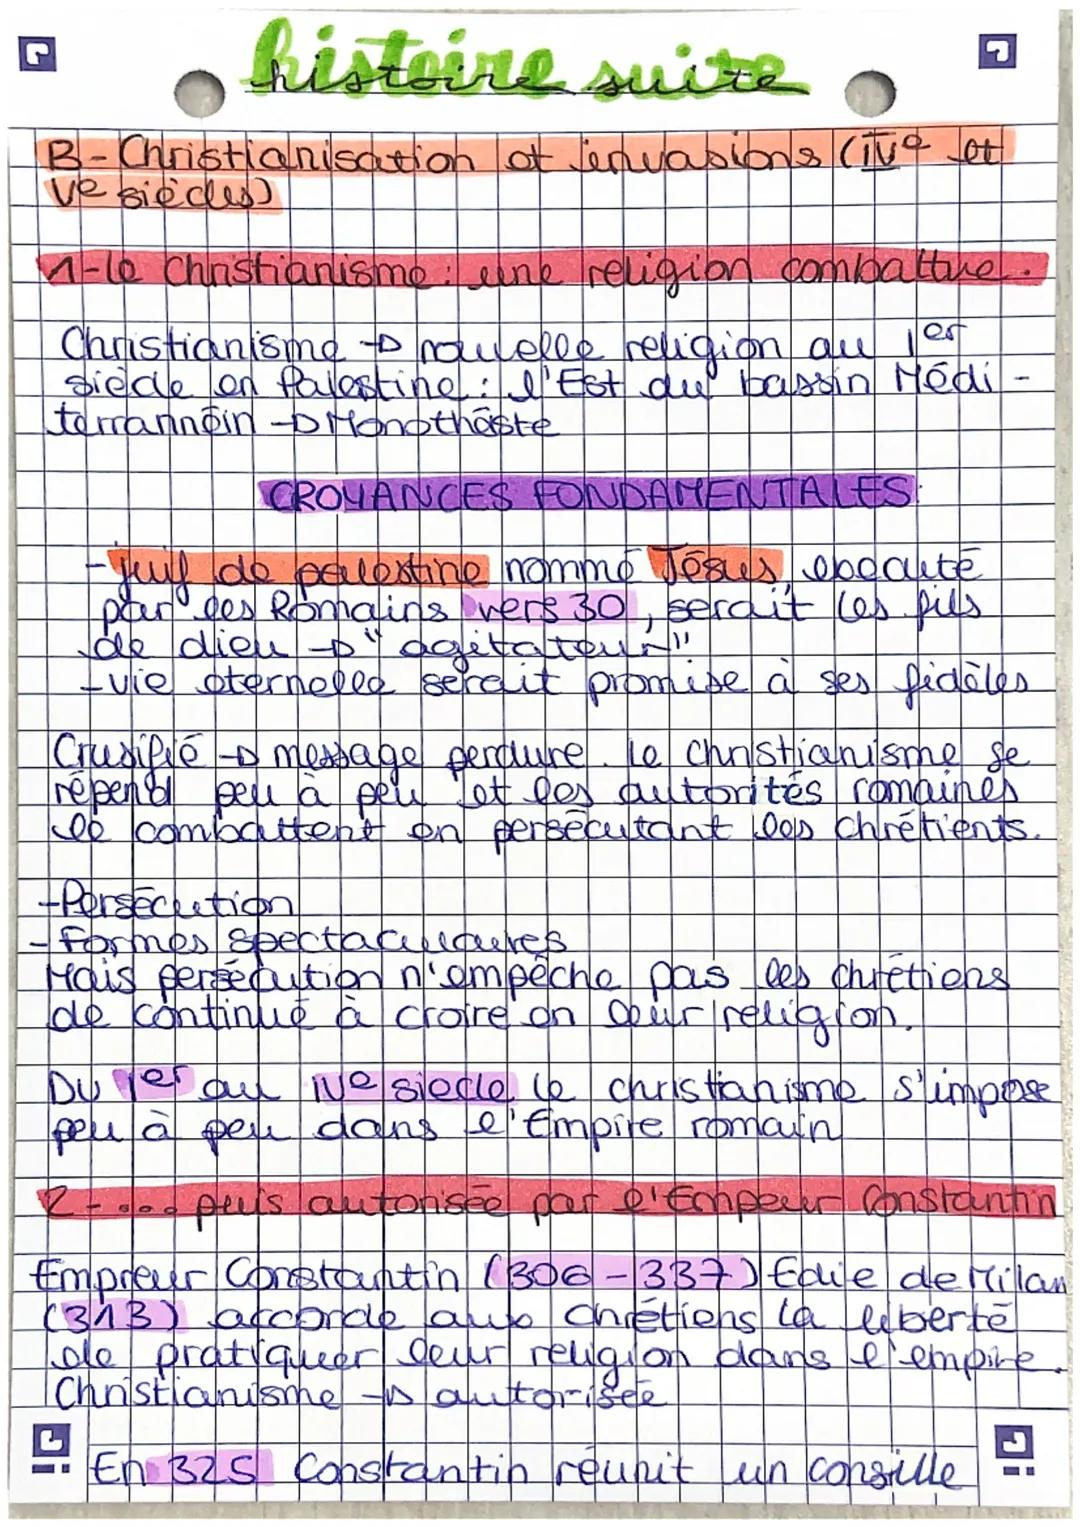 histoire suite
B - Christianisation et invasions (IVe et
Ve siècles)
1 - le Christianisme : une religion combattue.
Christianisme → nouvelle religion au 1er
siècle en Palestine : l'Est du bassin Médi -
terrannéin → Monothéiste
CROYANCES FONDAMENTALES
- juif de palestine nommé Jésus, exécuté
par les Romains vers 30, serait les fils
de dieu → "agitateur"
- vie éternelle serait promise à ses fidèles
Crusifié → message perdure. Le christianisme se
répend peu à peu et les autorités romaines
le combattent en persécutant les chrétients.
- Persécution
- formes spectaculaires
Mais persécution n'empêche pas les chrétiens
de continué à croire en leur religion.
Du 1er au IVe siecle le christianisme s'impose
peu à peu dans l'Empire romain
2 - ... puis autorisée par l'Empeur Constantin
Empreur Constantin (306 - 337) Edie de Milan
(313) accorde aux chrétiens la liberté
de pratiquer leur religion dans l'empire.
Christianisme → autorisée
En 325 Constantin réunit un consille